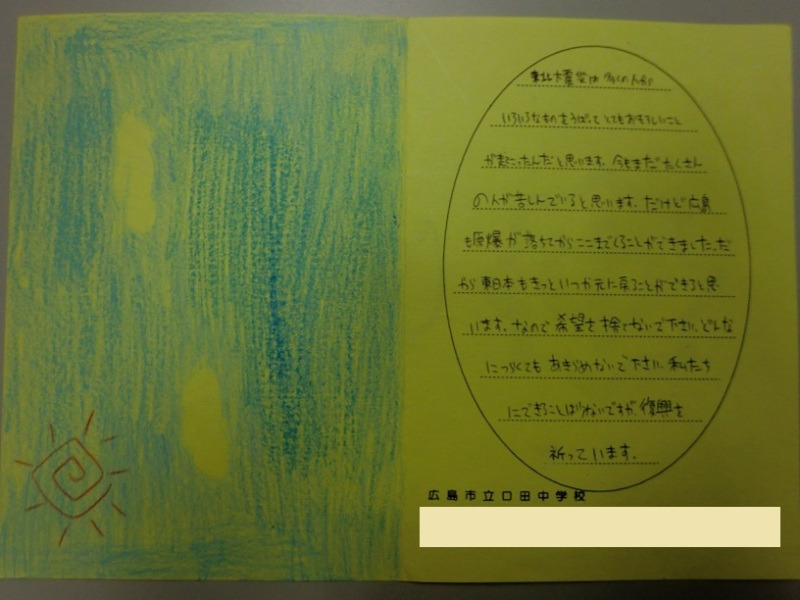 東北大震災は多くの人から
いろいろなものをうばって とてもおそろしいこと
が起こったんだと思います。今もまだたくさん
の人が苦しんでいると思います。だけど広島
も原爆が落ちてからここまでくることができました。だ
から東日本もきっといつか元に戻ることができると思
います。なので希望を捨てないで下さい。どんな
につらくてもあきらめないで下さい。私たち
にできることは少ないですが、復興を
祈っています。
広島市立口田中学校